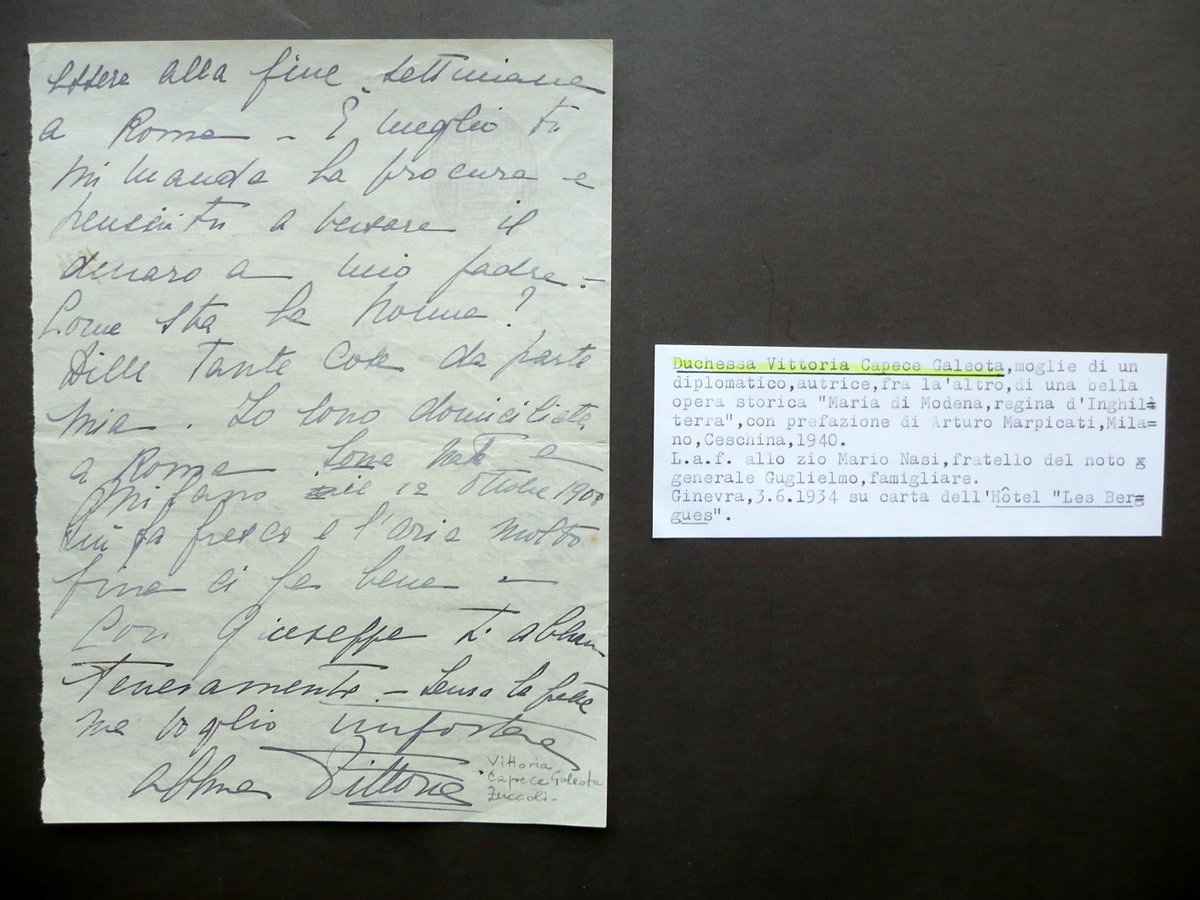 essere alla fine settimana
a Roma – È meglio tu
mi manda la procura e
pensi tu a versare il
denaro a mio padre –
Come sta la Nonna?
Dille tante cose da parte
mia. Io sono domiciliata
a Roma Sono nata a
Milano il 12 Ottobre 190
fa fresco e l'aria molto
fine ci fa bene –
Con Giuseppe ti abbra
teneramente. – Senza la
ma voglio
Vittoria
Vittoria
Capece Galeota
Zuccoli –
Duchessa Vittoria Capece Galeota,moglie di un
diplomatico,autrice,fra la'altro,di una bella
opera storica "Maria di Modena,regina d'Inghil=
terra",con prefazione di Arturo Marpicati,Mila=
no,Ceschina,1940.
L.a.f. allo zio Mario Nasi,fratello del noto g
generale Guglielmo,famigliare.
Ginevra,3.6.1934 su carta dell'Hôtel "Les Ber=
gues".